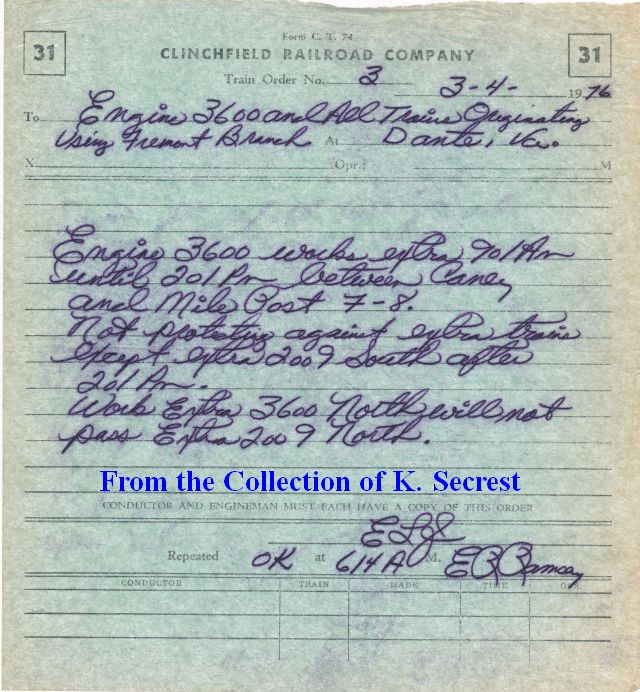 Form C. T. 74
31 CLINCHFIELD RAILROAD COMPANY 31
Train Order No. 3 3-4- 1976
To Engine 3600 and All Trains Originating
Using Fremont Branch At Dante, Va.
X Opr.: M
Engine 3600 works extra 901 Am
until 201 Pm between Caney
and Mile Post 7-8.
Not protecting against extra trains
Except extra 2009 South after
201 Am.
Work Extra 3600 North will not
pass Extra 2009 North.
From the Collection of K. Secrest
CONDUCTOR AND ENGINEMAN MUST EACH HAVE A COPY OF THIS ORDER
Repeated OK at 614 A M. E R Ramsay
CONDUCTOR TRAIN MADE TIME